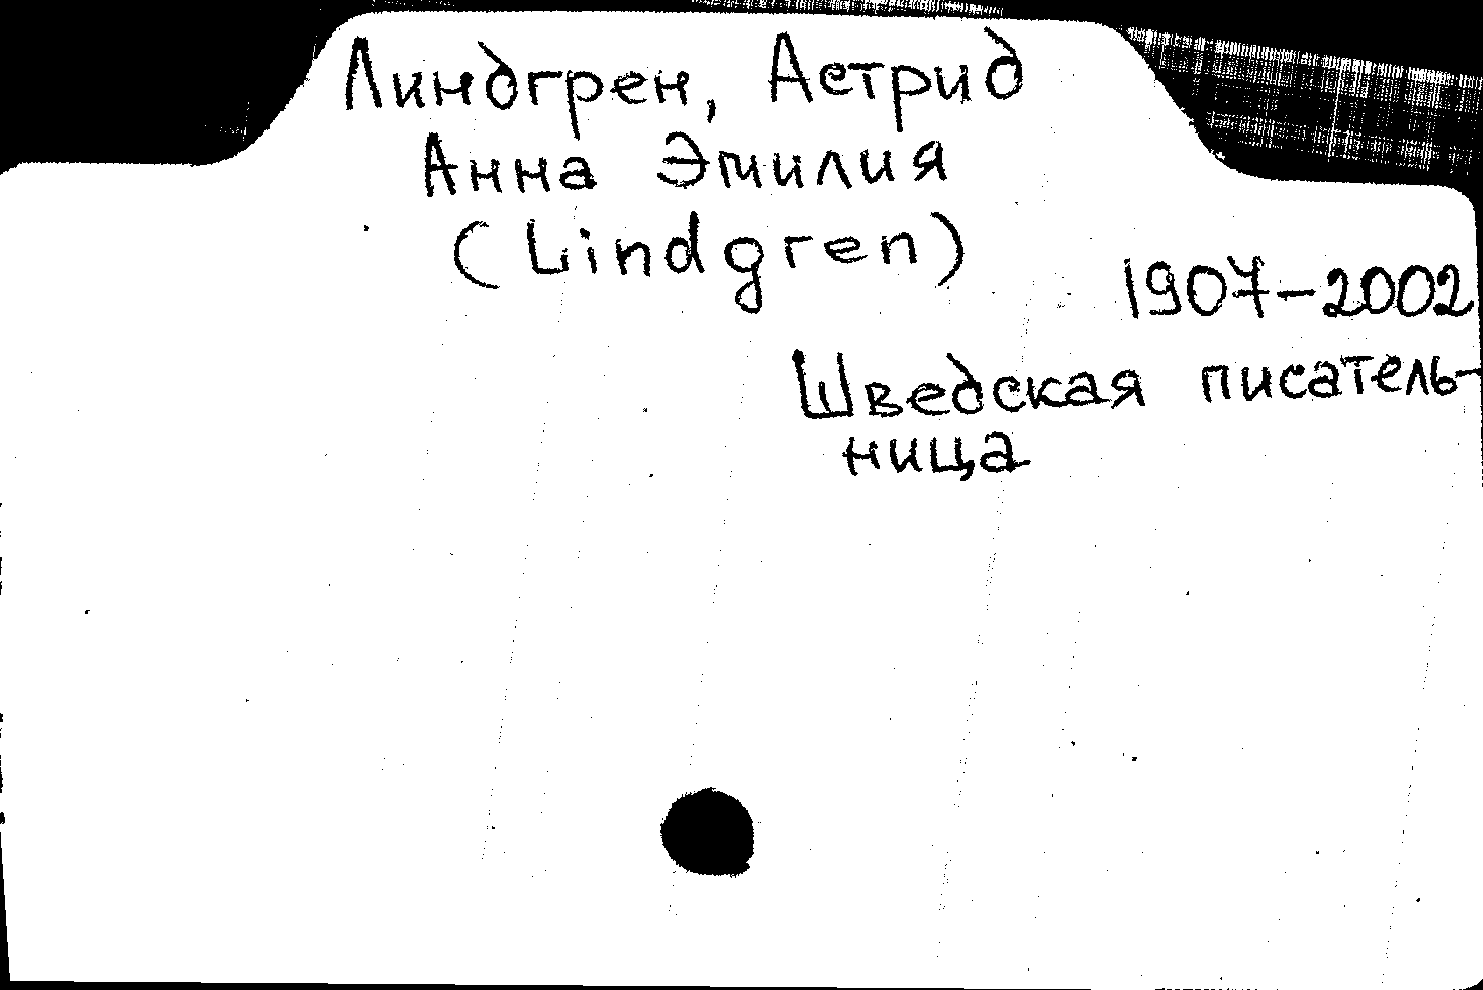 Линдгрен, Астрид
Анна Эмилия
(Lindgren)
1907-2002
Шведская писатель-
ница